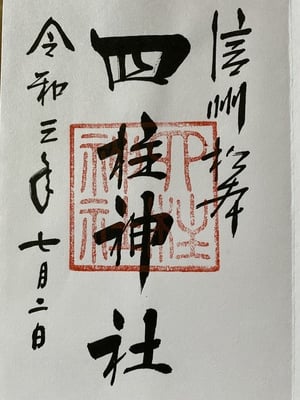 信州松本
四柱神社
令和三年七月二日